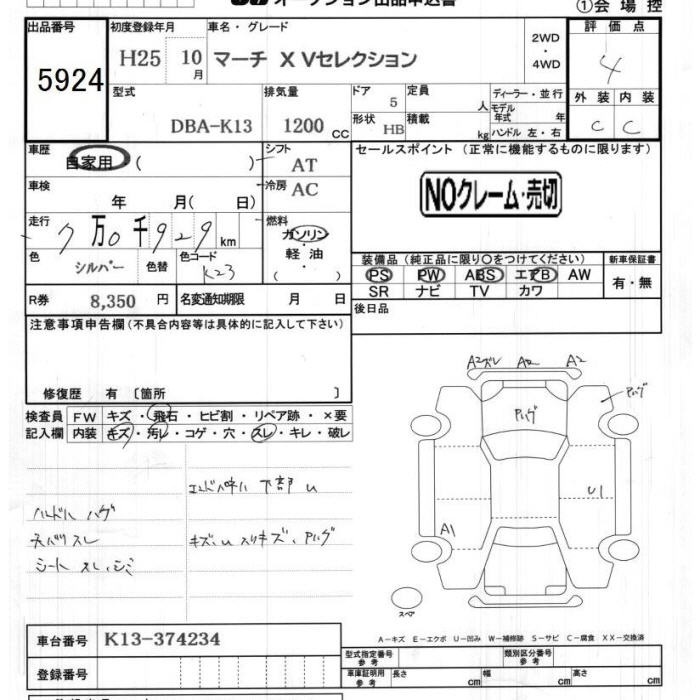 オークション出品申込書
①会場控
出品番号 初度登録年月 車名・グレード 評価点
5924 H25 10月 マーチ X Vセレクション 2WD・4WD 4
型式 排気量 ドア 5 定員 人 ディーラー・並行 外装 内装
DBA-K13 1200 CC 形状 HB 積載 kg モデル年式 年 ハンドル 左・右 C C
車歴 自家用 ( ) シフト AT セールスポイント (正常に機能するものに限ります)
車検 年 月( 日) 冷房 AC NOクレーム・売切
走行 7万0千929km 燃料 ガソリン・軽油・( )
色 シルバー 色替 色コード K23
装備品(純正品に限り〇をつけてください) 新車保証書
PS PW ABS エアB AW 有・無
SR ナビ TV カワ
R券 8,350円 名変通知期限 月 日 後日品
注意事項申告欄(不具合内容等は具体的に記入して下さい)
修復歴 有 〔箇所 〕
検査員 FW キズ・飛石・ヒビ割・リペア跡・×要
記入欄 内装 キズ・汚レ・コゲ・穴・スレ・キレ・破レ
下部 U
ハンドル ハゲ
キズ、U スリキズ、Pハゲ
シート スレ、シミ
A2ズレ A2 A2
Pハゲ
Pハゲ
U1
A1
スペア
A-キズ E-エクボ U-凹み W-補修跡 S-サビ C-腐食 XX-交換済
車台番号 K13-374234
型式指定番号 参考 類別区分番号 参考
登録番号
車庫証明用 参考 長さ cm 幅 cm 高さ cm